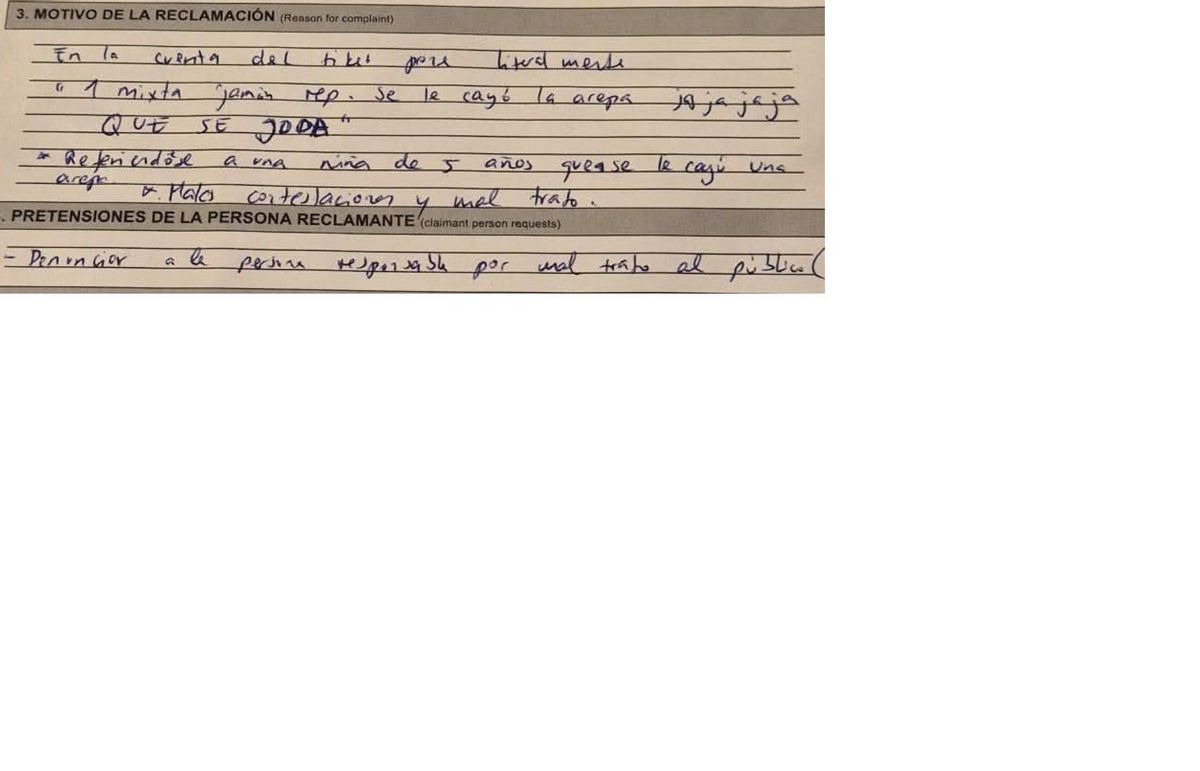 3. MOTIVO DE LA RECLAMACIÓN (Reason for complaint)
En la cuenta del tiket pone literalmente
" 1 mixta jamón rep. se le cayó la arepa ja ja ja ja
QUE SE JODA"
* Refericndóse a una niña de 5 años que se le cayó una
arepa. * Malas contestaciones y mal trato.
. PRETENSIONES DE LA PERSONA RECLAMANTE (claimant person requests)
- Denunciar a la persona responsable por mal trato al público (